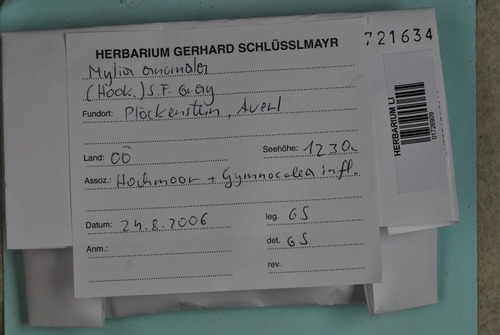 HERBARIUM GERHARD SCHLÜSSLMAYR
721634
Mylia anomala
(Hook.) S.F. Gray
Fundort: Plöckenstein, Auerl
Land: OÖ
Seehöhe: 1230
Assoz.: Hochmoor + Gymnocolea infl.
Datum: 24.8.2006
leg. GS
Anm.:
det. GS
rev.
HERBARIUM LI